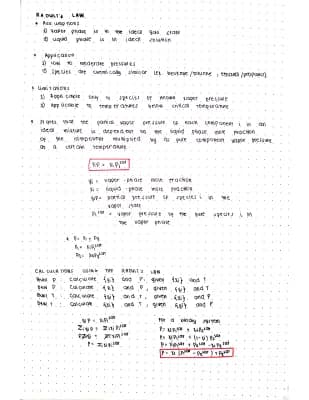 RAOULT'S LAW
* Assumptions
1) vapor phase is in the ideal gas state
2) liquid phase is in ideal solution
* Application
1) low to moderate pressures
2) species are chemically similar (ex. benzene/toluene,
* Limitations
1) Applicable only to species of known vapor pressure
2) Applicable to temperatures below critical temperature
* States that the partial vapor pressure of each component i in an
ideal mixture is dependent to the liquid phase mole fraction
of the component multiplied by its pure component vapor pressure
at a certain temperature
yᵢP = xᵢPᵢˢᵃᵗ
yᵢ = vapor-phase mole fraction
xᵢ = liquid-phase mole fraction
yᵢP = partial pressure of species i in the
vapor phase
Pᵢˢᵃᵗ = vapor pressure of the pure species i, in
the vapor phase
CALCULATIONS USING THE RAOULT'S LAW
BUBL P : calculate {yᵢ} and P, given {xᵢ} and T
DEW P : calculate {xᵢ} and P, given {yᵢ} and T
BUBL T : calculate {yᵢ} and T, given {xᵢ} and P
DEW T : calculate {xᵢ} and T, given {yᵢ} and P
yᵢP = xᵢPᵢˢᵃᵗ
For a binary system